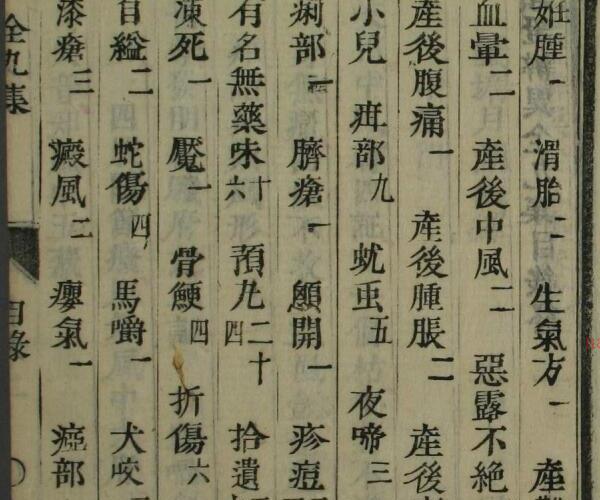 妊腫一 滑胎二 生氣方一 產
血暈二 產後中風二 惡露不絕
產後腹痛一 產後腫脹二 產後
小兒 疳部九 蚘虫五 夜啼三
痢部一 臍瘡一 顖開一 疹痘
有名無藥味十六 預九二十四 拾遺
凍死一 魘一 骨鯁四 折傷六
自縊二 蛇傷四 馬嚼一 犬咬
漆瘡三 癜風二 癭氣一 瘂部
全九集 目錄